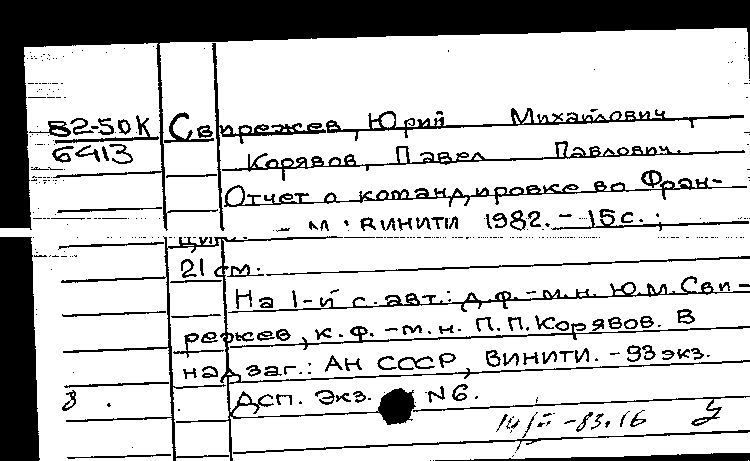 82-5DK Свирежев, Юрий Михайлович,
6413 Корявов, Павел Павлович.
Отчет о командировке во Фран-
цию. - М.: ВИНИТИ 1982. - 15 с.;
21 см.
На 1-й с. авт.: д.ф.-м.н. Ю.М. Сви-
режев, к.ф.-м.н. П.П. Корявов. В
надзаг.: АН СССР, ВИНИТИ. - 93 экз.
ДСП. Экз. N6.
14/II -83.16